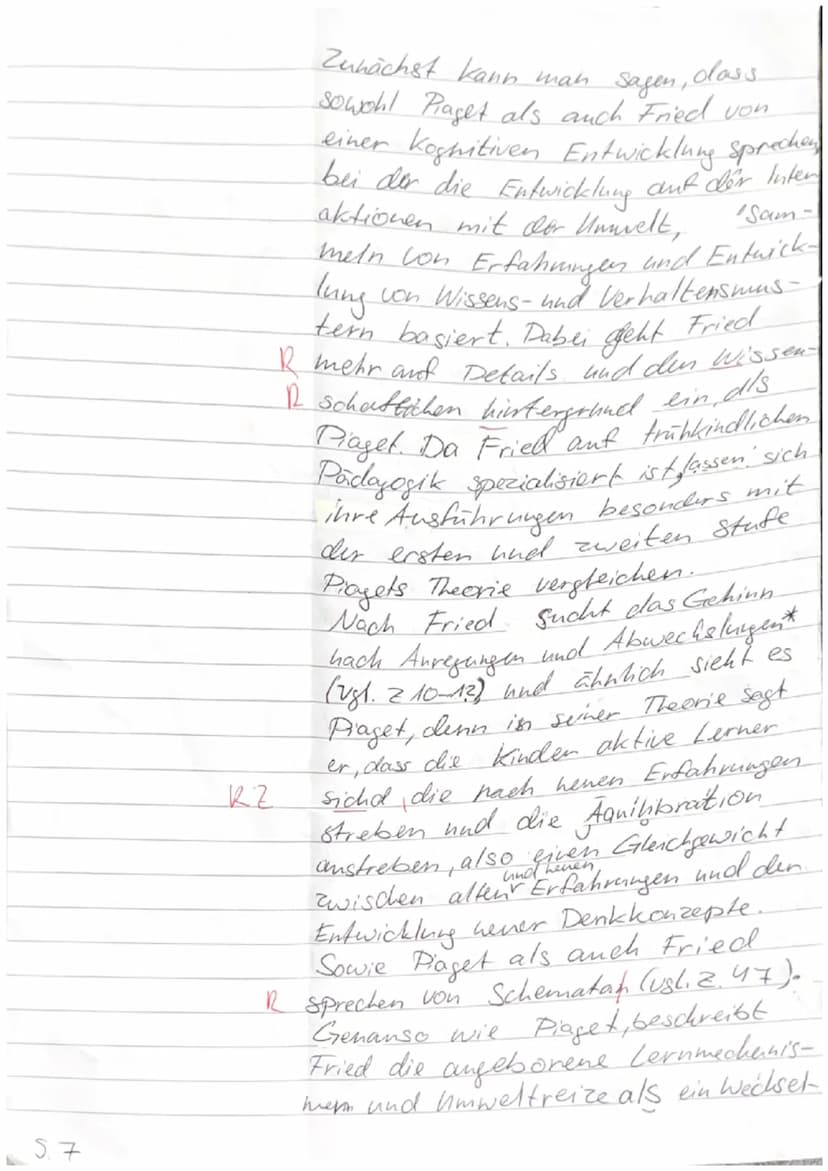 Zunächst kann man sagen, dass
sowohl Piaget als auch Fried von
einer Kognitiven Entwicklung sprechen,
bei der die Entwicklung auf der Inter
aktionen mit der Umwelt, 'Sam-
meln von Erfahrungen und Entwick-
lung von Wissens- und Verhaltensmus-
tern basiert. Dabei geht Fried
R mehr auf Details und den Wissen-
R schaftlichen hintergrund ein, als
Piaget. Da Fried auf frühkindlichen
Pädagogik spezialisiert ist, lassen sich
ihre Ausführungen besonders mit
der ersten und zweiten Stufe
Piagets Theorie vergleichen.
Nach Fried sucht das Gehinn
nach Anregungen und Abwechslungen*
(vgl. Z 10-12) und ähnlich sieht es
Piaget, denn in seiner Theorie sagt
er, dass die Kinder aktive Lerner
R Z sichd, die nach neuen Erfahrungen
streben und die Äquilibration
anstreben, also einen Gleichgewicht
und neuen
zwischen alten Erfahrungen und der
Entwicklung neuer Denkkonzepte.
Sowie Piaget als auch Fried
R sprechen von Schematah (vgl. Z. 47).
Genauso wie Piaget, beschreibt
Fried die angeborene Lernmechanis-
mem und Umweltreize als ein Wechsel-
S. 7